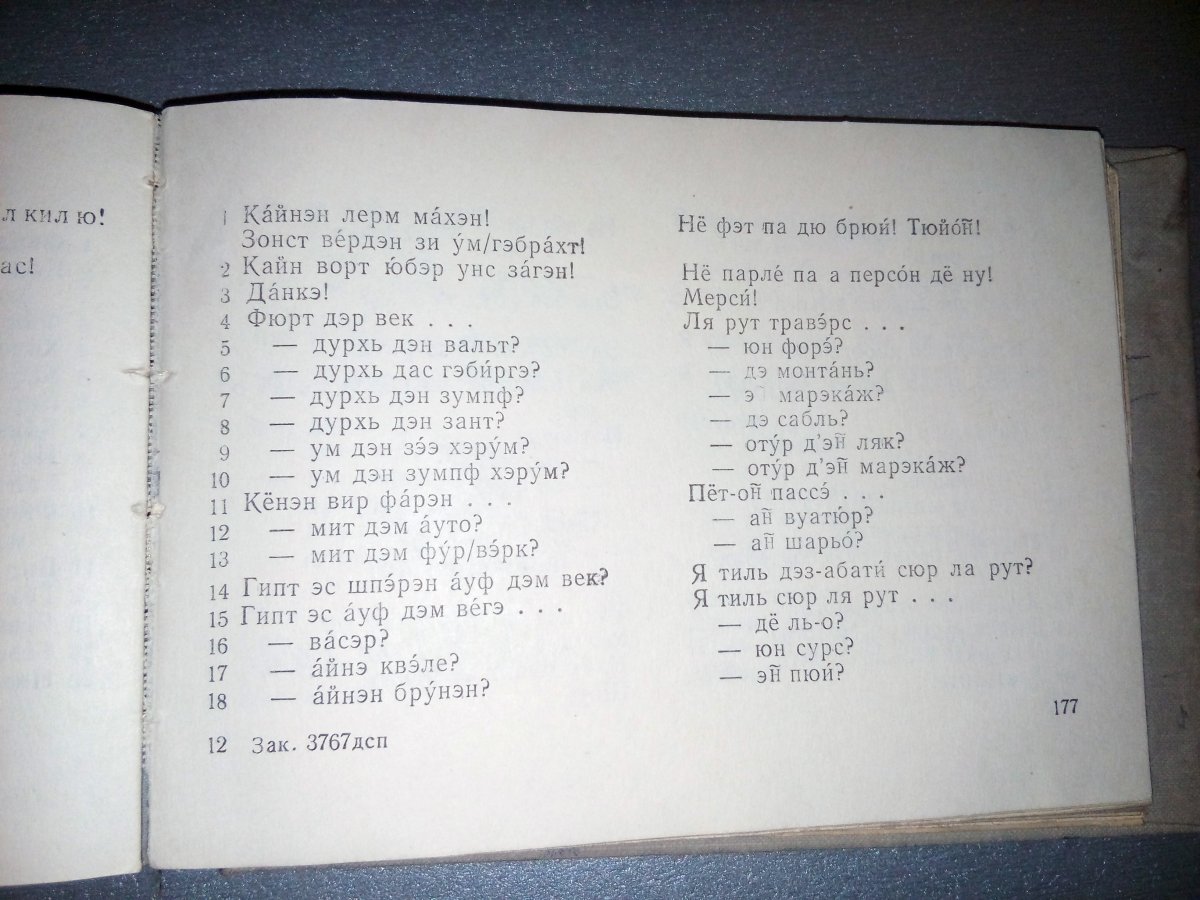 л кил ю!
ас!
1 Ка́йнэн лерм ма́хэн!
Зонст ве́рдэн зи у́м/гэбра́хт!
2 Кайн ворт ю́бэр унс за́гэн!
3 Да́нкэ!
4 Фюрт дэр век . . .
5 — дурхь дэн вальт?
6 — дурхь дас гэби́ргэ?
7 — дурхь дэн зумпф?
8 — дурхь дэн зант?
9 — ум дэн зэ́э хэру́м?
10 — ум дэн зумпф хэру́м?
11 Кёнэн вир фа́рэн . . .
12 — мит дэм а́уто?
13 — мит дэм фу́р/вэ́рк?
14 Гипт эс шпэ́рэн а́уф дэм век?
15 Гипт эс а́уф дэм ве́гэ . . .
16 — ва́сэр?
17 — а́йнэ квэ́ле?
18 — а́йнэн бру́нэн?
12 Зак. 3767дсп
Нё фэт па дю брюи́! Тюйо́н̃!
Нё парле́ па а персо́н дё ну!
Мерси́!
Ля рут травэ́рс . . .
— юн форэ́?
— дэ монта́нь?
— э марэка́ж?
— дэ сабль?
— оту́р д’эн̃ ляк?
— оту́р д’эн̃ марэка́ж?
Пёт-он̃ пассэ́ . . .
— ан̃ вуатю́р?
— ан̃ шарьо́?
Я тиль дэз-абати́ сюр ла рут?
Я тиль сюр ля рут . . .
— дё ль-о?
— юн сурс?
— эн̃ пюи́?
177